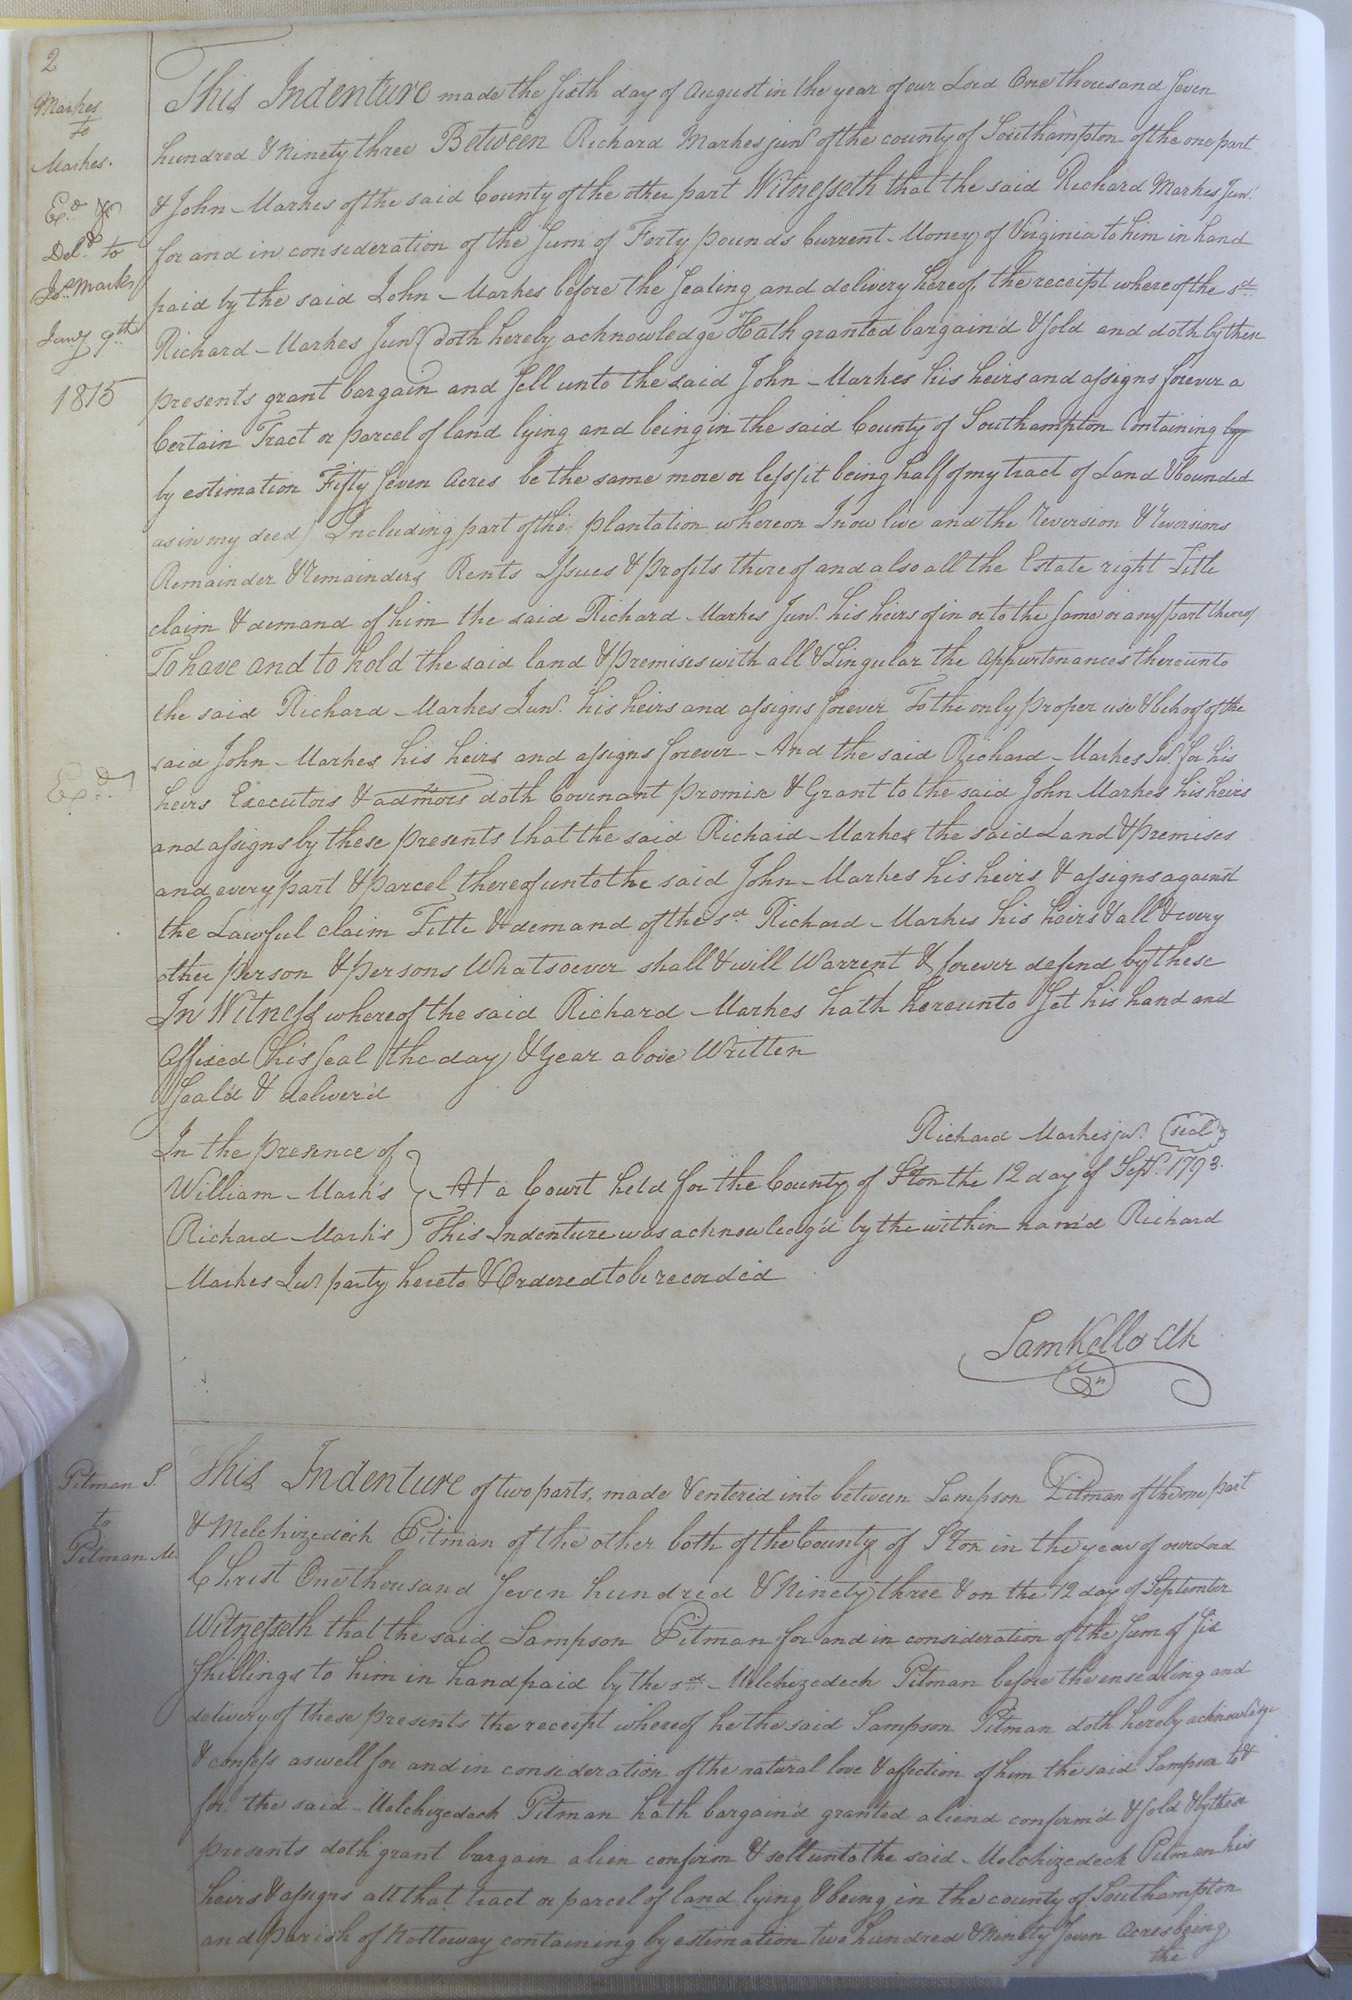 2
Markes
to
Markes.
Exd. &
Deld. to
Jos. Marks
Jany 9th
1815
This Indenture made the sixth day of August in the year of our Lord One thousand seven
hundred & Ninety three Between Richard Markes junr. of the county of Southampton of the one part
& John Markes of the said County of the other part Witnesseth that the said Richard Markes Junr.
for and in consideration of the sum of Forty pounds Current Money of Virginia to him in hand
paid by the said John Markes before the sealing and delivery hereof, the receipt whereof the sd.
Richard Markes Junr. doth hereby acknowledge Hath granted bargain'd & sold and doth by these
presents grant bargain and sell unto the said John Markes his heirs and assigns forever a
Certain Tract or parcel of land lying and being in the said County of Southampton Containing by
by estimation Fifty seven Acres be the same more or less (it being half of my tract of Land & bounded
as in my deed) Including part of the plantation whereon I now live and the reversion & reversions
Remainder & Remainders Rents Issues & profits thereof and also all the Estate right Title
claim & demand of him the said Richard Markes Junr. his heirs of in or to the same or any part thereof
To have and to hold the said land & premises with all & Singular the Appurtenances thereunto
the said Richard Markes Junr. his heirs and assigns forever To the only proper use & behoof of the
said John Markes his heirs and assigns forever And the said Richard Markes Jur. for his
heirs Executors & admors doth Covenant promise & Grant to the said John Markes his heirs
Exd.
and assigns by these presents that the said Richard Markes the said Land & premises
and every part & parcel thereof unto the said John Markes his heirs & assigns against
the Lawful claim Title & demand of the sd. Richard Markes his heirs & all & every
other person & persons Whatsoever shall & will Warrent & forever defend by these
In Witness whereof the said Richard Markes hath hereunto set his hand and
affixed his seal the day & year above Written
Seal'd & deliver'd
In the presence of
Richard Markes jur. (seal)
William Mark's
At a Court held for the County of Ston the 12 day of Sept. 1793.
Richard Mark's
This Indenture was acknowledg'd by the within nam'd Richard
Markes Jur. party hereto & Ordered to be recorded
Sam Kello Clk
Pitman S.
to
Pitman M.
This Indenture of two parts, made & entered into between Sampson Pitman of the one part
& Melchizedeck Pitman of the other both of the County of Ston in the year of our Lord
Christ One thousand seven hundred & Ninety three & on the 12 day of September
Witnesseth that the said Sampson Pitman for and in consideration of the sum of six
shillings to him in hand paid by the sd. Melchizedeck Pitman before the ensealing and
delivery of these presents the receipt whereof he the said Sampson Pitman doth hereby acknowledge
& confess as well for and in consideration of the natural love & affection of him the said Sampson to &
for the said Melchizedeck Pitman hath bargain'd granted aliend confirm'd & sold & by these
presents doth grant bargain alien confirm & sell unto the said Melchizedeck Pitman his
heirs & assigns all that tract or parcel of land lying & being in the county of Southampton
and parish of Nottoway containing by estimation two hundred & Ninety seven acres being
the